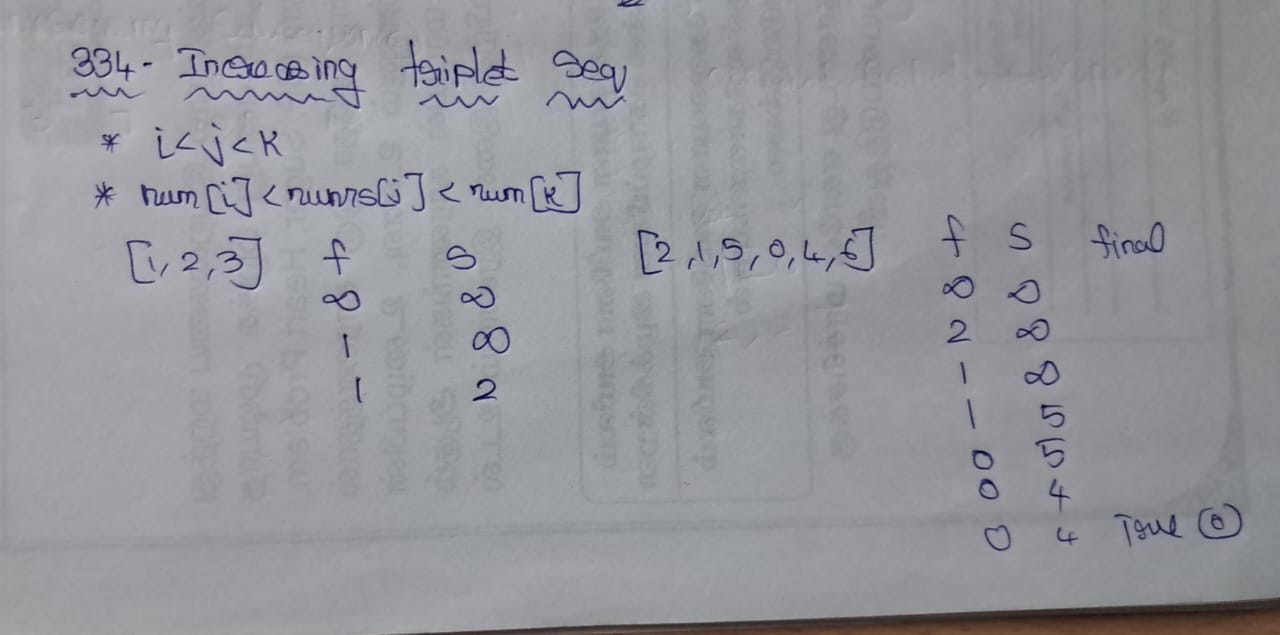 334 - Increasing triplet Seq
* i<j<k
* num[i]<nums[j]<num[k]
[1,2,3] f S
∞ ∞
1 ∞
1 2
[2,1,5,0,4,6] f S final
∞ ∞
2 ∞
1 ∞
1 5
0 5
0 4
0 4 True